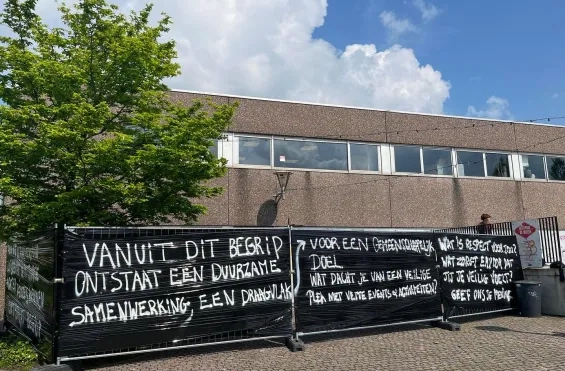 VANUIT DIT BEGRIP
ONTSTAAT EEN DUURZAME
SAMENWERKING, EEN DRAAGVLAK
VOOR EEN GEMEENSCHAPPELIJK
DOEL
WAT DACHT JE VAN EEN VEILIGE
PLEK MET VETTE EVENTS & ACTIVITEITEN?
WAT IS RESPECT VOOR JOU?
WAT ZORGT ERVOOR DAT
JIJ JE VEILIG VOELT?
GEEF ONS JE MENING